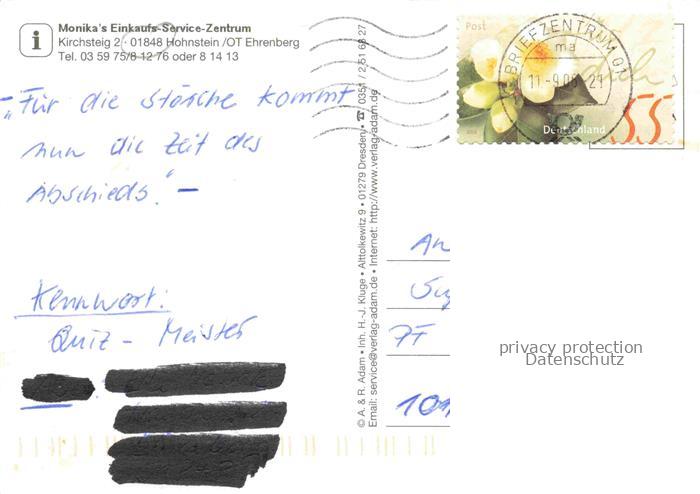 Monika's Einkaufs-Service-Zentrum
Kirchsteig 2 · 01848 Hohnstein /OT Ehrenberg
Tel. 03 59 75/8 12 76 oder 8 14 13
– „Für die Störche kommt
nun die Zeit des
Abschieds." –
Kennwort:
Quiz - Meister
© A. & R. Adam • Inh. H.-J. Kluge • Alttolkewitz 9 • 01279 Dresden • ☎ 0351 / 2 51 68 27
Email: service@verlag-adam.de • Internet: http://www.verlag-adam.de
Post
BRIEFZENTRUM
ma
Deutschland
55
An
privacy protection
Datenschutz